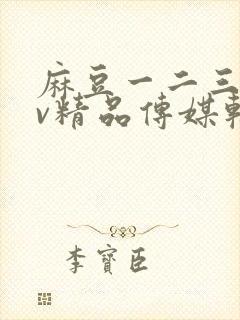 麻豆一二三
v精品傳媒
李寶臣